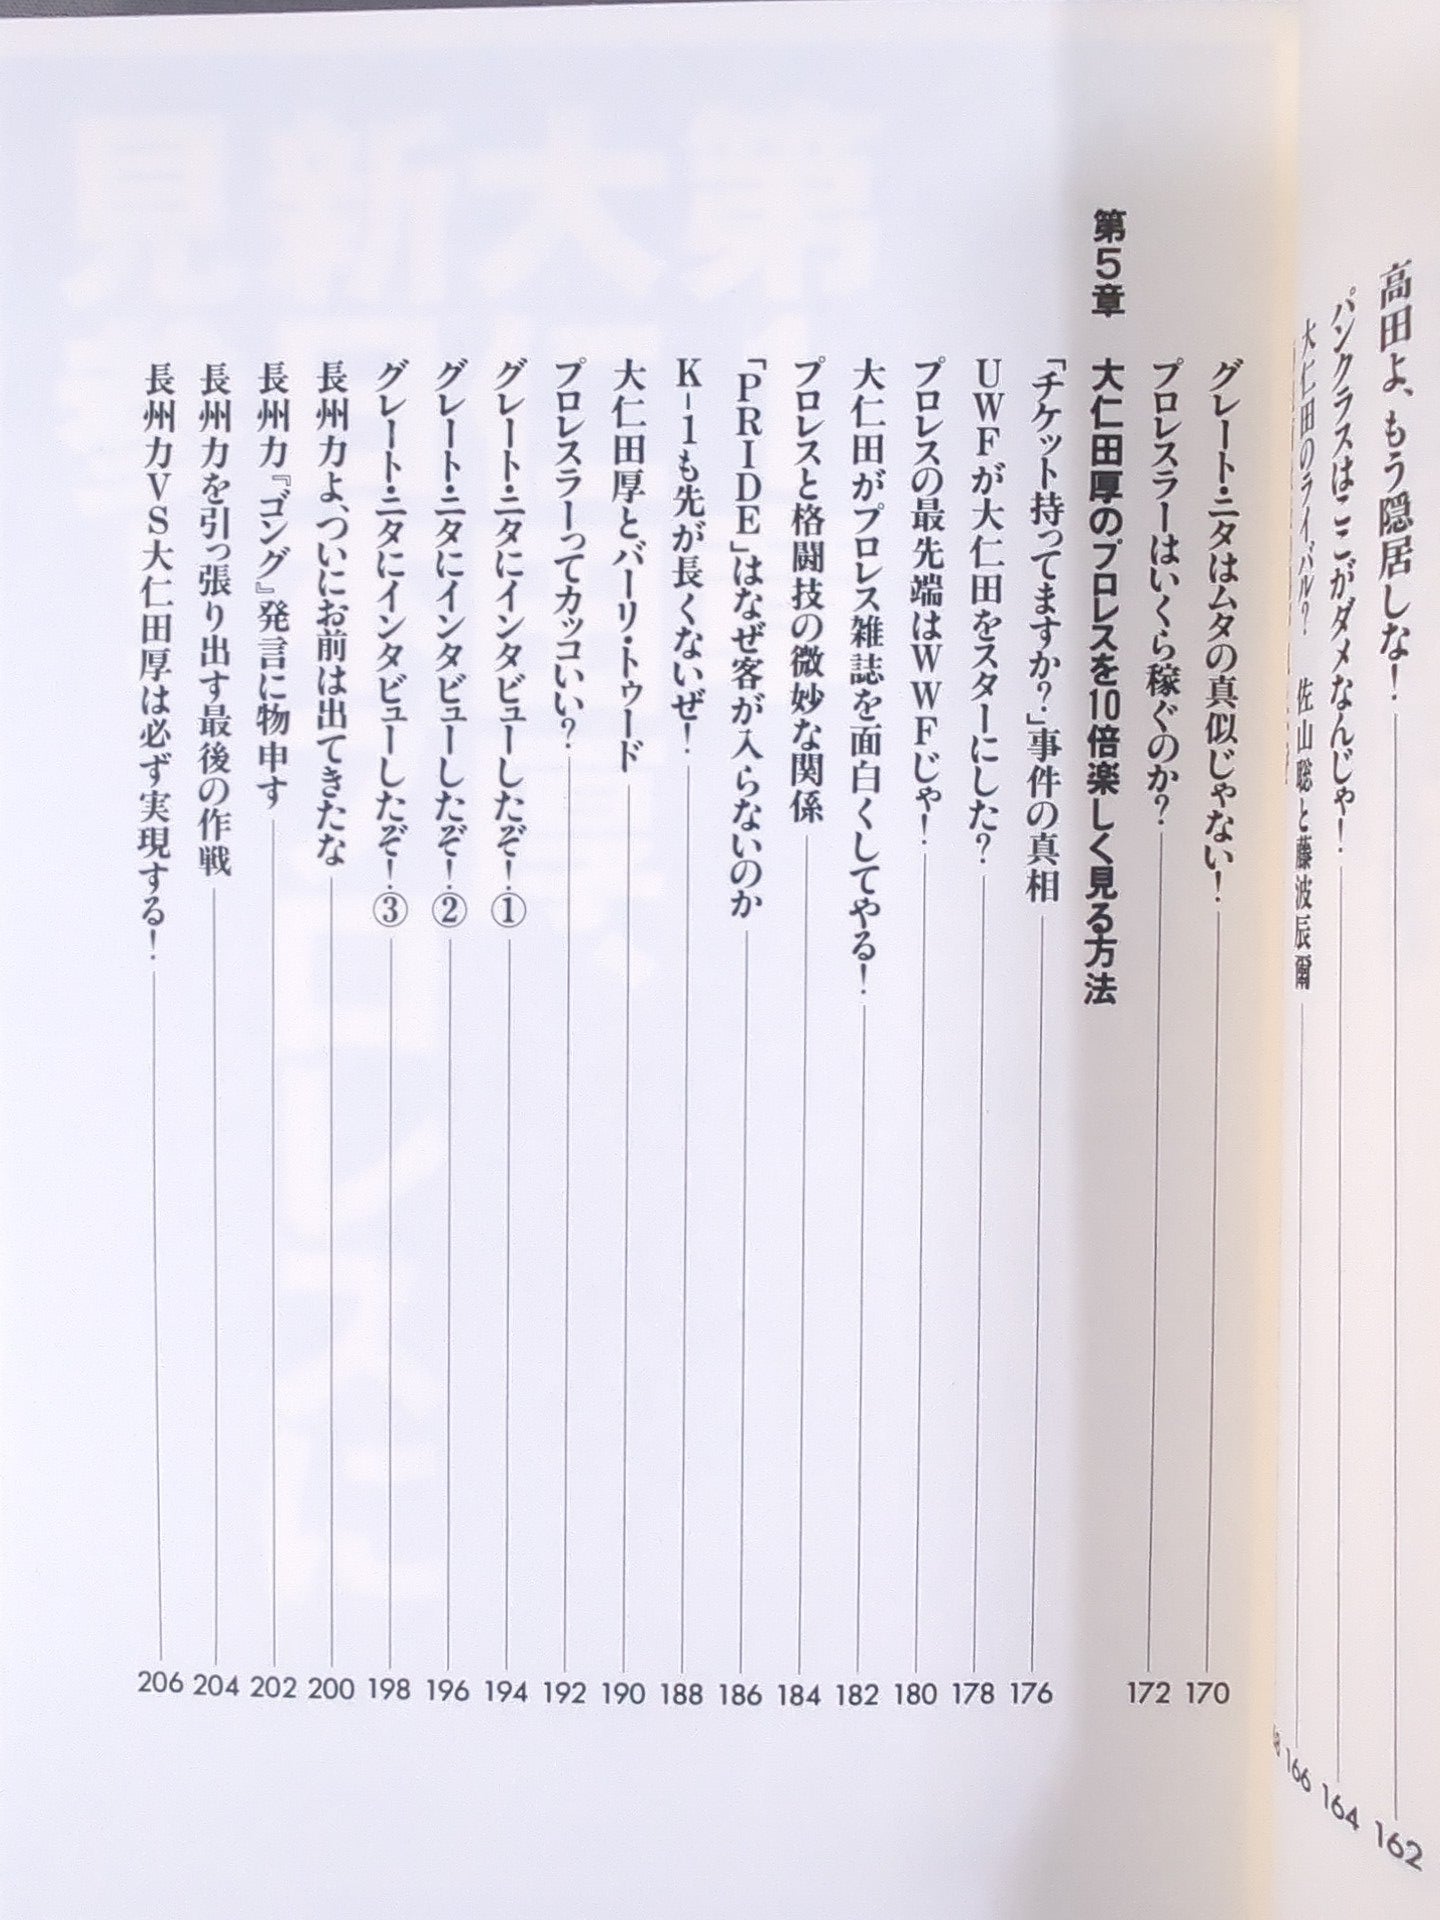 高田よ、もう隠居しな！ 162
パンクラスはここがダメなんじゃ！ 164
大仁田のライバル？　佐山聡と藤波辰爾 166
グレート・ニタはムタの真似じゃない！ 170
プロレスラーはいくら稼ぐのか？ 172
第5章　大仁田厚のプロレスを10倍楽しく見る方法
「チケット持ってますか？」事件の真相 176
UWFが大仁田をスターにした？ 178
プロレスの最先端はWWFじゃ！ 180
大仁田がプロレス雑誌を面白くしてやる！ 182
プロレスと格闘技の微妙な関係 184
「PRIDE」はなぜ客が入らないのか 186
K-1も先が長くないぜ！ 188
大仁田厚とバーリ・トゥード 190
プロレスラーってカッコいい？ 192
グレート・ニタにインタビューしたぞ！① 194
グレート・ニタにインタビューしたぞ！② 196
グレート・ニタにインタビューしたぞ！③ 198
長州力よ、ついにお前は出てきたな 200
長州力『ゴング』発言に物申す 202
長州力を引っ張り出す最後の作戦 204
長州力VS大仁田厚は必ず実現する！ 206